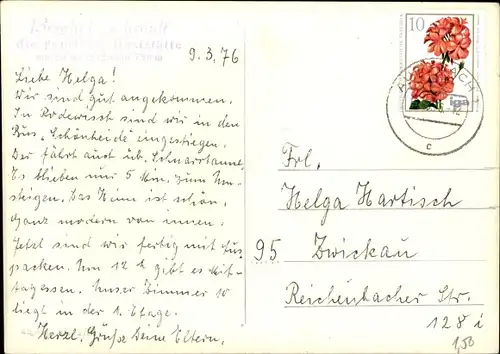 9.3.76
Liebe Helga!
Wir sind gut angekommen.
In Rodewisch sind wir in den
Bus, Schönheide eingestiegen.
Der fährt auch üb. Schnarrtanne.
Es blieben nur 5 Min. zum Um-
steigen. Das Heim ist schön.
Ganz modern von innen.
Jetzt sind wir fertig mit Aus-
packen. Um 12 h gibt es Mit-
tagessen. Unser Zimmer 10
liegt in der 1. Etage.
Herzl. Grüße Deine Eltern.
10
iga
c
Frl.
Helga Hartisch
95 Zwickau
Reichenbacher Str.
128 i
1,50